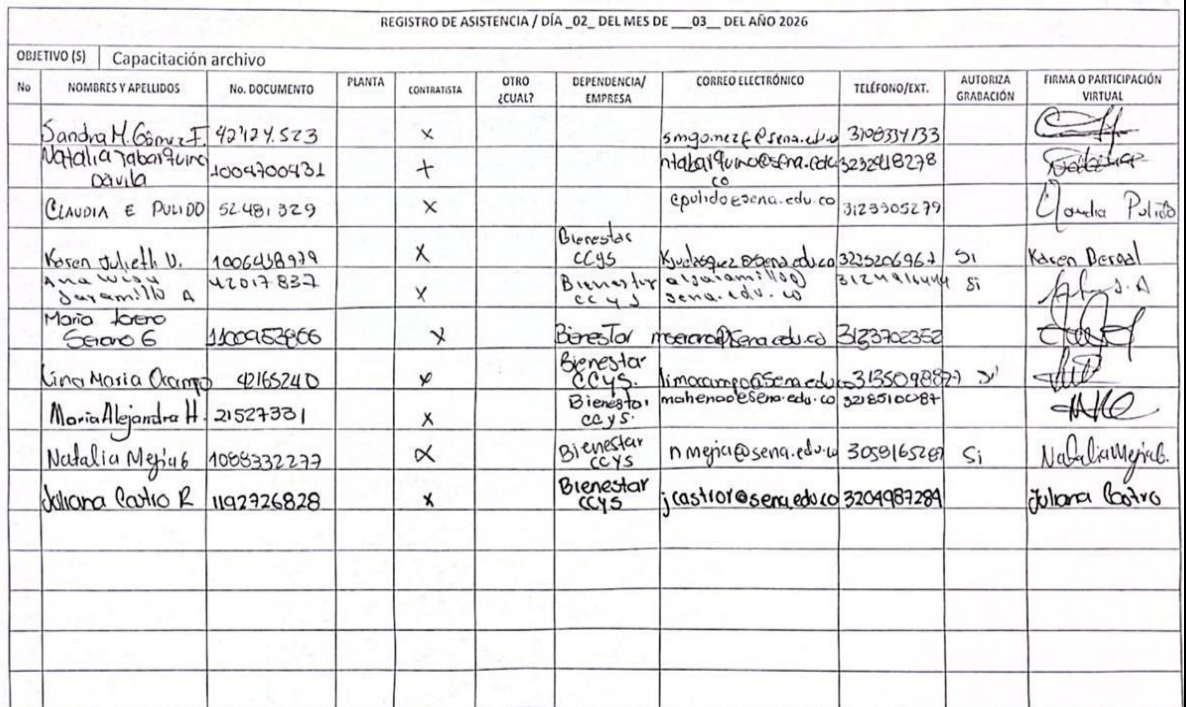 REGISTRO DE ASISTENCIA / DÍA _02_ DEL MES DE ___03__ DEL AÑO 2026
OBJETIVO (S) Capacitación archivo
No NOMBRES Y APELLIDOS No. DOCUMENTO PLANTA CONTRATISTA OTRO ¿CUAL? DEPENDENCIA/ EMPRESA CORREO ELECTRÓNICO TELÉFONO/EXT. AUTORIZA GRABACIÓN FIRMA O PARTICIPACIÓN VIRTUAL
Sandra M. Gómez F. 42'124.523 x smgomezf@sena.edu.co 3108334133
Natalia Tabarquino Davila 1004700431 + ntabarquino@sena.edu.co 3232418278
CLAUDIA E PULIDO 52.481329 x cpulido@sena.edu.co 3123305279 Claudia Pulido
Karen Julieth V. x Bienestar CCYS Si Karen
Jaramillo A 42017837 x Bienestar ccys sena.edu.co Si
Serano G x Bienestar 3123702352
Lina Maria Ocampo 42165240 x Bienestar CCYS. limocampo@sena.edu.co 3135098877 si
Maria Alejandra H. 21527331 x Bienestar ccys. mahenao@sena.edu.co 3218510087
Natalia Mejia G 1088332277 x Bienestar CCYS nmejia@sena.edu.co Si Natalia Mejia G.
Juliana Castro R 1192726828 x Bienestar CCYS jcastror@sena.edu.co 3204987284 Juliana Castro